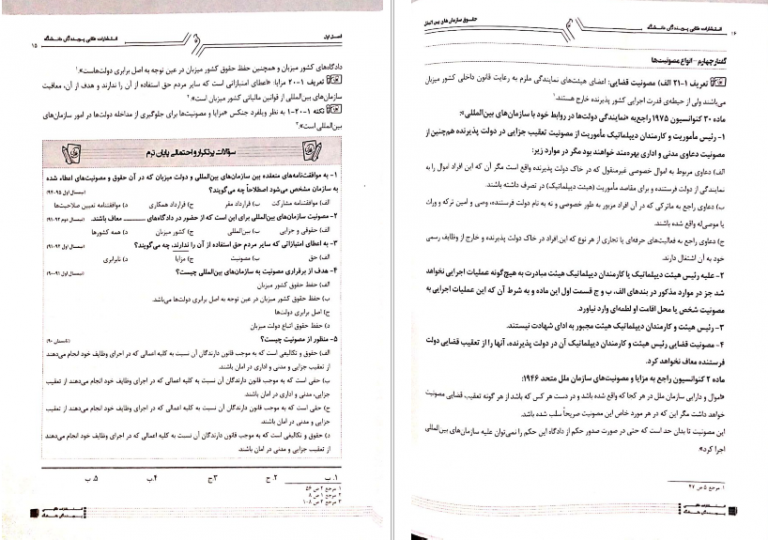 ۱۵
انتشارات طلایی پویندگان دانشگاه
فصل اول
دادگاه‌های کشور میزبان و همچنین حفظ حقوق کشور میزبان در عین توجه به اصل برابری دولت‌هاست».
تعریف ۱-۲۰ مزایا: «اعطای امتیازاتی است که سایر مردم حق استفاده از آن را ندارند و هدف از آن، معافیت
سازمان‌های بین‌المللی از قوانین مالیاتی کشور میزبان است».
نکته ۱-۲۰-۱ به نظر ویلفرد جنکس «مزایا و مصونیت‌ها برای جلوگیری از مداخله دولت‌ها در امور سازمان‌های
بین‌المللی است».
سؤالات پرتکرار و احتمالی پایان ترم
۱- به موافقت‌نامه‌های منعقده بین سازمان‌های بین‌المللی و دولت میزبان که در آن حقوق و مصونیت‌های اعطاء شده
به سازمان مشخص می‌شود اصطلاحاً چه می‌گویند؟
الف) موافقتنامه مشارکت ب) قرارداد مقر ج) قرارداد همکاری د) موافقتنامه تعیین صلاحیت‌ها
۲- مصونیت سازمان‌های بین‌المللی برای این است که از حضور در دادگاه‌های ........ معاف باشند.
الف) حقوقی و جزایی ب) بین‌المللی ج) کشور میزبان د) همه کشورها
۳- به اعطای امتیازاتی که سایر مردم حق استفاده از آن را ندارند، چه می‌گویند؟
الف) حق ب) مصونیت ج) مزایا د) نابرابری
۴- هدف از برقراری مصونیت به سازمان‌های بین‌المللی چیست؟
الف) حفظ حقوق کشور میزبان
ب) حفظ حقوق کشور میزبان در عین توجه به اصل برابری دولت‌ها می‌باشد.
ج) اصل برابری دولت‌ها
د) حفظ حقوق اتباع دولت میزبان
۵- منظور از مصونیت چیست؟
الف) حقوق و تکالیفی است که به موجب قانون دارندگان آن نسبت به کلیه اعمالی که در اجرای وظایف خود انجام می‌دهند
از تعقیب جزایی و مدنی و اداری در امان باشند.
ب) حقی است که به موجب قانون دارندگان آن نسبت به کلیه اعمالی که در اجرای وظایف خود انجام می‌دهند از تعقیب
جزایی، مدنی و اداری در امان باشند.
ج) حقی است که به موجب قانون دارندگان آن نسبت به کلیه اعمالی که در اجرای وظایف خود انجام می‌دهند از تعقیب
جزایی و مدنی در امان باشند.
د) حقوق و تکالیفی است که به موجب قانون دارندگان آن نسبت به کلیه اعمالی که در اجرای وظایف خود انجام می‌دهند
از تعقیب جزایی و مدنی در امان باشند.
۱. ب ۲. ج ۳. ج ۴. ب ۵. ب
حقوق سازمان‌های بین‌المللی
انتشارات طلایی پویندگان دانشگاه
گفتار چهارم - انواع مصونیت‌ها
تعریف ۱-۲۱ الف) مصونیت قضایی: اعضای هیئت‌های نمایندگی ملزم به رعایت قانون داخلی کشور میزبان
می‌باشند ولی از حیطه‌ی قدرت اجرایی کشور پذیرنده خارج هستند.
ماده ۳۰ کنوانسیون ۱۹۷۵ راجع‌به «نمایندگی دولت‌ها در روابط خود با سازمان‌های بین‌المللی»:
۱- رئیس مأموریت و کارمندان دیپلماتیک مأموریت از مصونیت تعقیب جزایی در دولت پذیرنده هم‌چنین از
مصونیت دعاوی مدنی و اداری بهره‌مند خواهند بود مگر در موارد زیر:
الف) دعاوی مربوط به اموال خصوصی غیرمنقول که در خاک دولت پذیرنده واقع است مگر آن که این افراد اموال را به
نمایندگی از دولت فرستنده و برای مقاصد مأموریت (هیئت دیپلماتیک) در تصرف داشته باشند.
ب) دعاوی راجع به ماترکی که در آن افراد مزبور به طور خصوصی و نه به نام دولت فرستنده، وصی و امین ترکه و وراث
یا موصی‌له واقع شده باشند.
ج) دعاوی راجع به فعالیت‌های حرفه‌ای یا تجاری از هر نوع که این افراد در خاک دولت پذیرنده و خارج از وظایف رسمی
خود به آن اشتغال دارند.
۲- علیه رئیس هیئت دیپلماتیک یا کارمندان دیپلماتیک هیئت مبادرت به هیچ‌گونه عملیات اجرایی نخواهد
شد جز در موارد مذکور در بندهای الف، ب و ج قسمت اول این ماده و به شرط آن که این عملیات اجرایی به
مصونیت شخص یا محل اقامت او لطمه‌ای وارد نیاورد.
۳- رئیس هیئت و کارمندان دیپلماتیک هیئت مجبور به ادای شهادت نیستند.
۴- مصونیت قضایی رئیس هیئت و کارمندان دیپلماتیک آن در دولت پذیرنده، آنها را از تعقیب قضایی دولت
فرستنده معاف نخواهد کرد.
ماده ۲ کنوانسیون راجع به مزایا و مصونیت‌های سازمان ملل متحد ۱۹۴۶:
«اموال و دارایی سازمان ملل در هر کجا که واقع شده باشد و در دست هر کس که باشد از هر گونه تعقیب قضایی مصونیت
خواهد داشت مگر این که در هر مورد خاص این مصونیت صریحاً سلب شده باشد.
این مصونیت تا بدان حد است که حتی در صورت صدور حکم از دادگاه این حکم را نمی‌توان علیه سازمان‌های بین‌المللی
اجرا کرد»